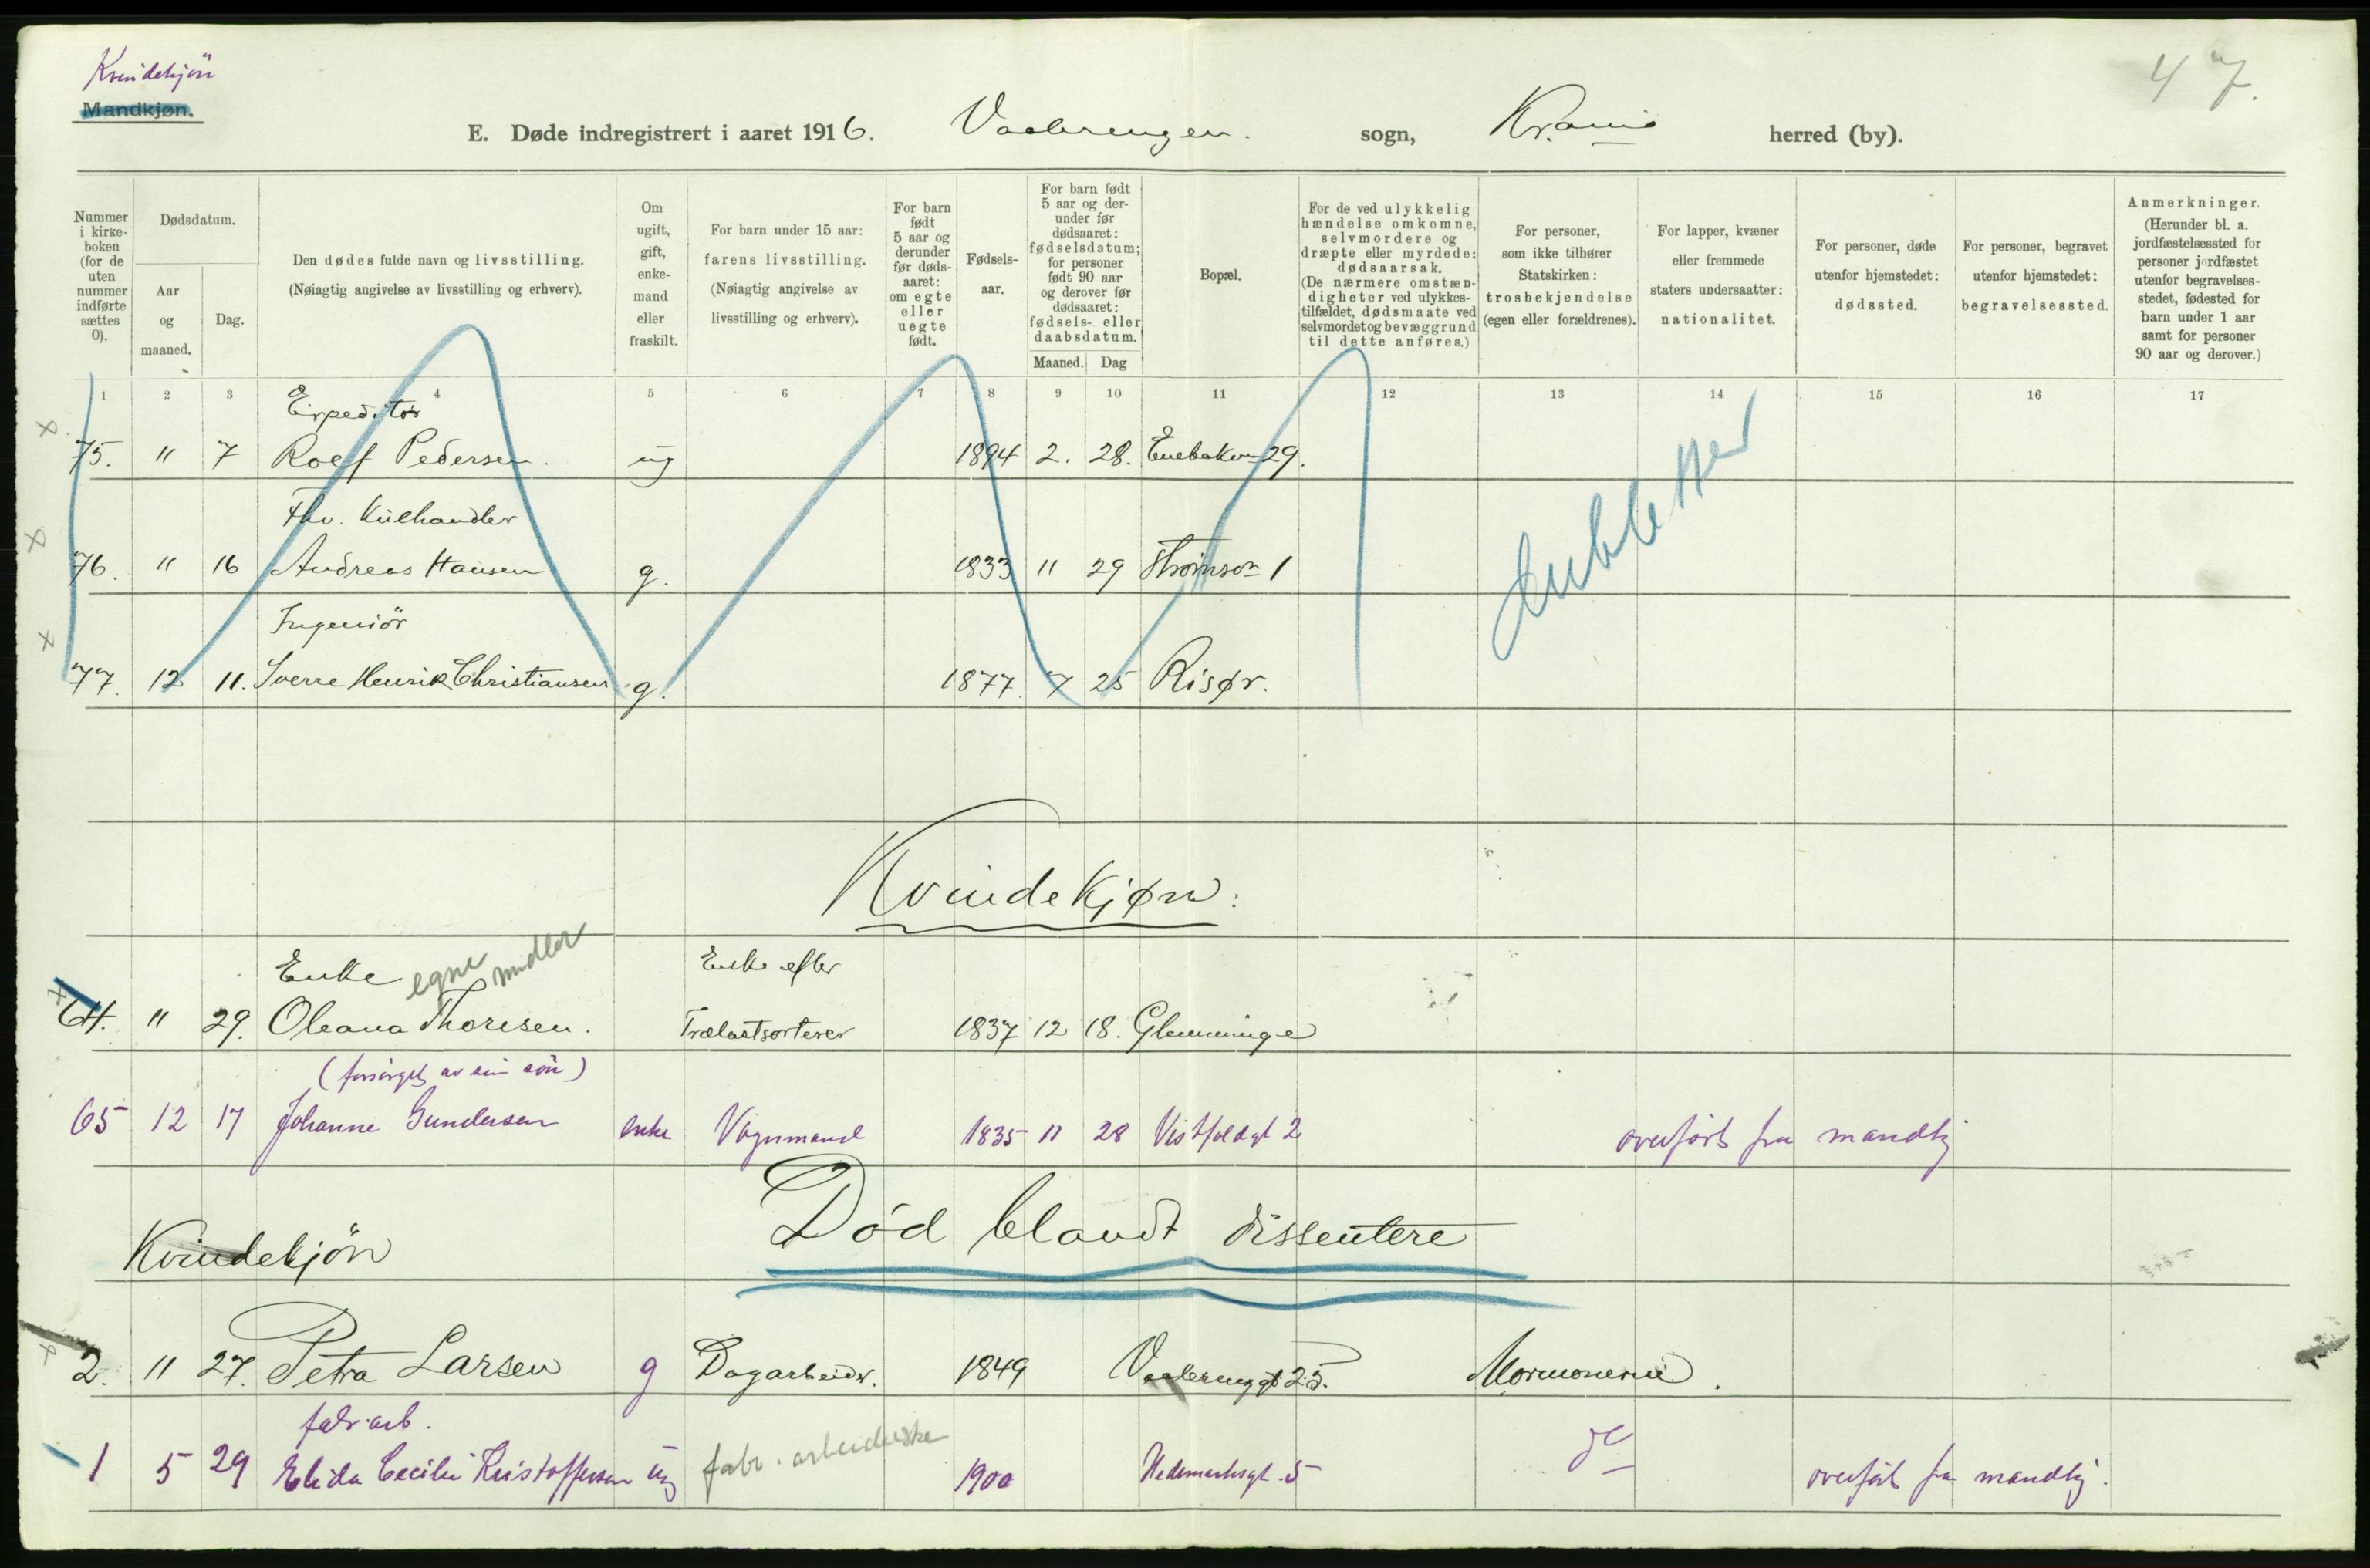 Kvindekjön
Mandkjøn.
47.
E. Døde indregistrert i aaret 1916. Vaalerengen. sogn, Kr.ania herred (by).
Nummer i kirke-boken (for de uten nummer indførte sættes 0).
Dødsdatum.
Aar og maaned.
Dag.
Den dødes fulde navn og livsstilling.
(Nøiagtig angivelse av livsstilling og erhverv).
Om ugift, gift, enke-mand eller fraskilt.
For barn under 15 aar: farens livsstilling.
(Nøiagtig angivelse av livsstilling og erhverv).
For barn født 5 aar og derunder før døds-aaret: om egte eller uegte født.
Fødsels-aar.
For barn født 5 aar og der-under før dødsaaret: fødselsdatum; for personer født 90 aar og derover før dødsaaret: fødsels- eller daabsdatum.
Maaned. Dag
Bopæl.
For de ved ulykkelig hændelse omkomne, selvmordere og dræpte eller myrdede: dødsaarsak.
(De nærmere omstæn-digheter ved ulykkes-tilfældet, dødsmaate ved selvmordet og bevæggrund til dette anføres.)
For personer, som ikke tilhører Statskirken: trosbekjendelse (egen eller forældrenes).
For lapper, kvæner eller fremmede staters undersaatter: nationalitet.
For personer, døde utenfor hjemstedet: dødssted.
For personer, begravet utenfor hjemstedet: begravelsessted.
Anmerkninger.
(Herunder bl. a. jordfæstelsessted for personer jordfæstet utenfor begravelses-stedet, fødested for barn under 1 aar samt for personer 90 aar og derover.)
1 2 3 4 5 6 7 8 9 10 11 12 13 14 15 16 17
Expeditör
75. 11 7 Rolf Pedersen. ug 1894 2. 28. Enebakvn 29.
dubletter
Fhv. Kulhandler
76. 11 16 Andreas Hansen g. 1833 11 29 Strømsvn 1
Ingeniör
77. 12 11. Sverre Henrik Christiansen g. 1877. 7 25 Risør.
Kvindekjøn:
Enke egne midler Enke efter
64. 11 29. Oleana Thoresen. Trælastsorterer 1837 12 18. Glemminge
(forsörget av sin sön)
65 12 17 Johanne Gundersen enke Vognmand 1835 11 28 Vestfoldgt 2 overfört fra mandkj
Död blandt dissentere
Kvindekjön
2. 11 27. Petra Larsen g Dagarbeider. 1849 Vaalerenggt 25. Mormonerne.
fabr.arb.
1 5 29 Elida Cecilie Kristoffersen ug fabr. arbeiderske 1900 Hedemarksgt. 5 do overfört fra mandkj.